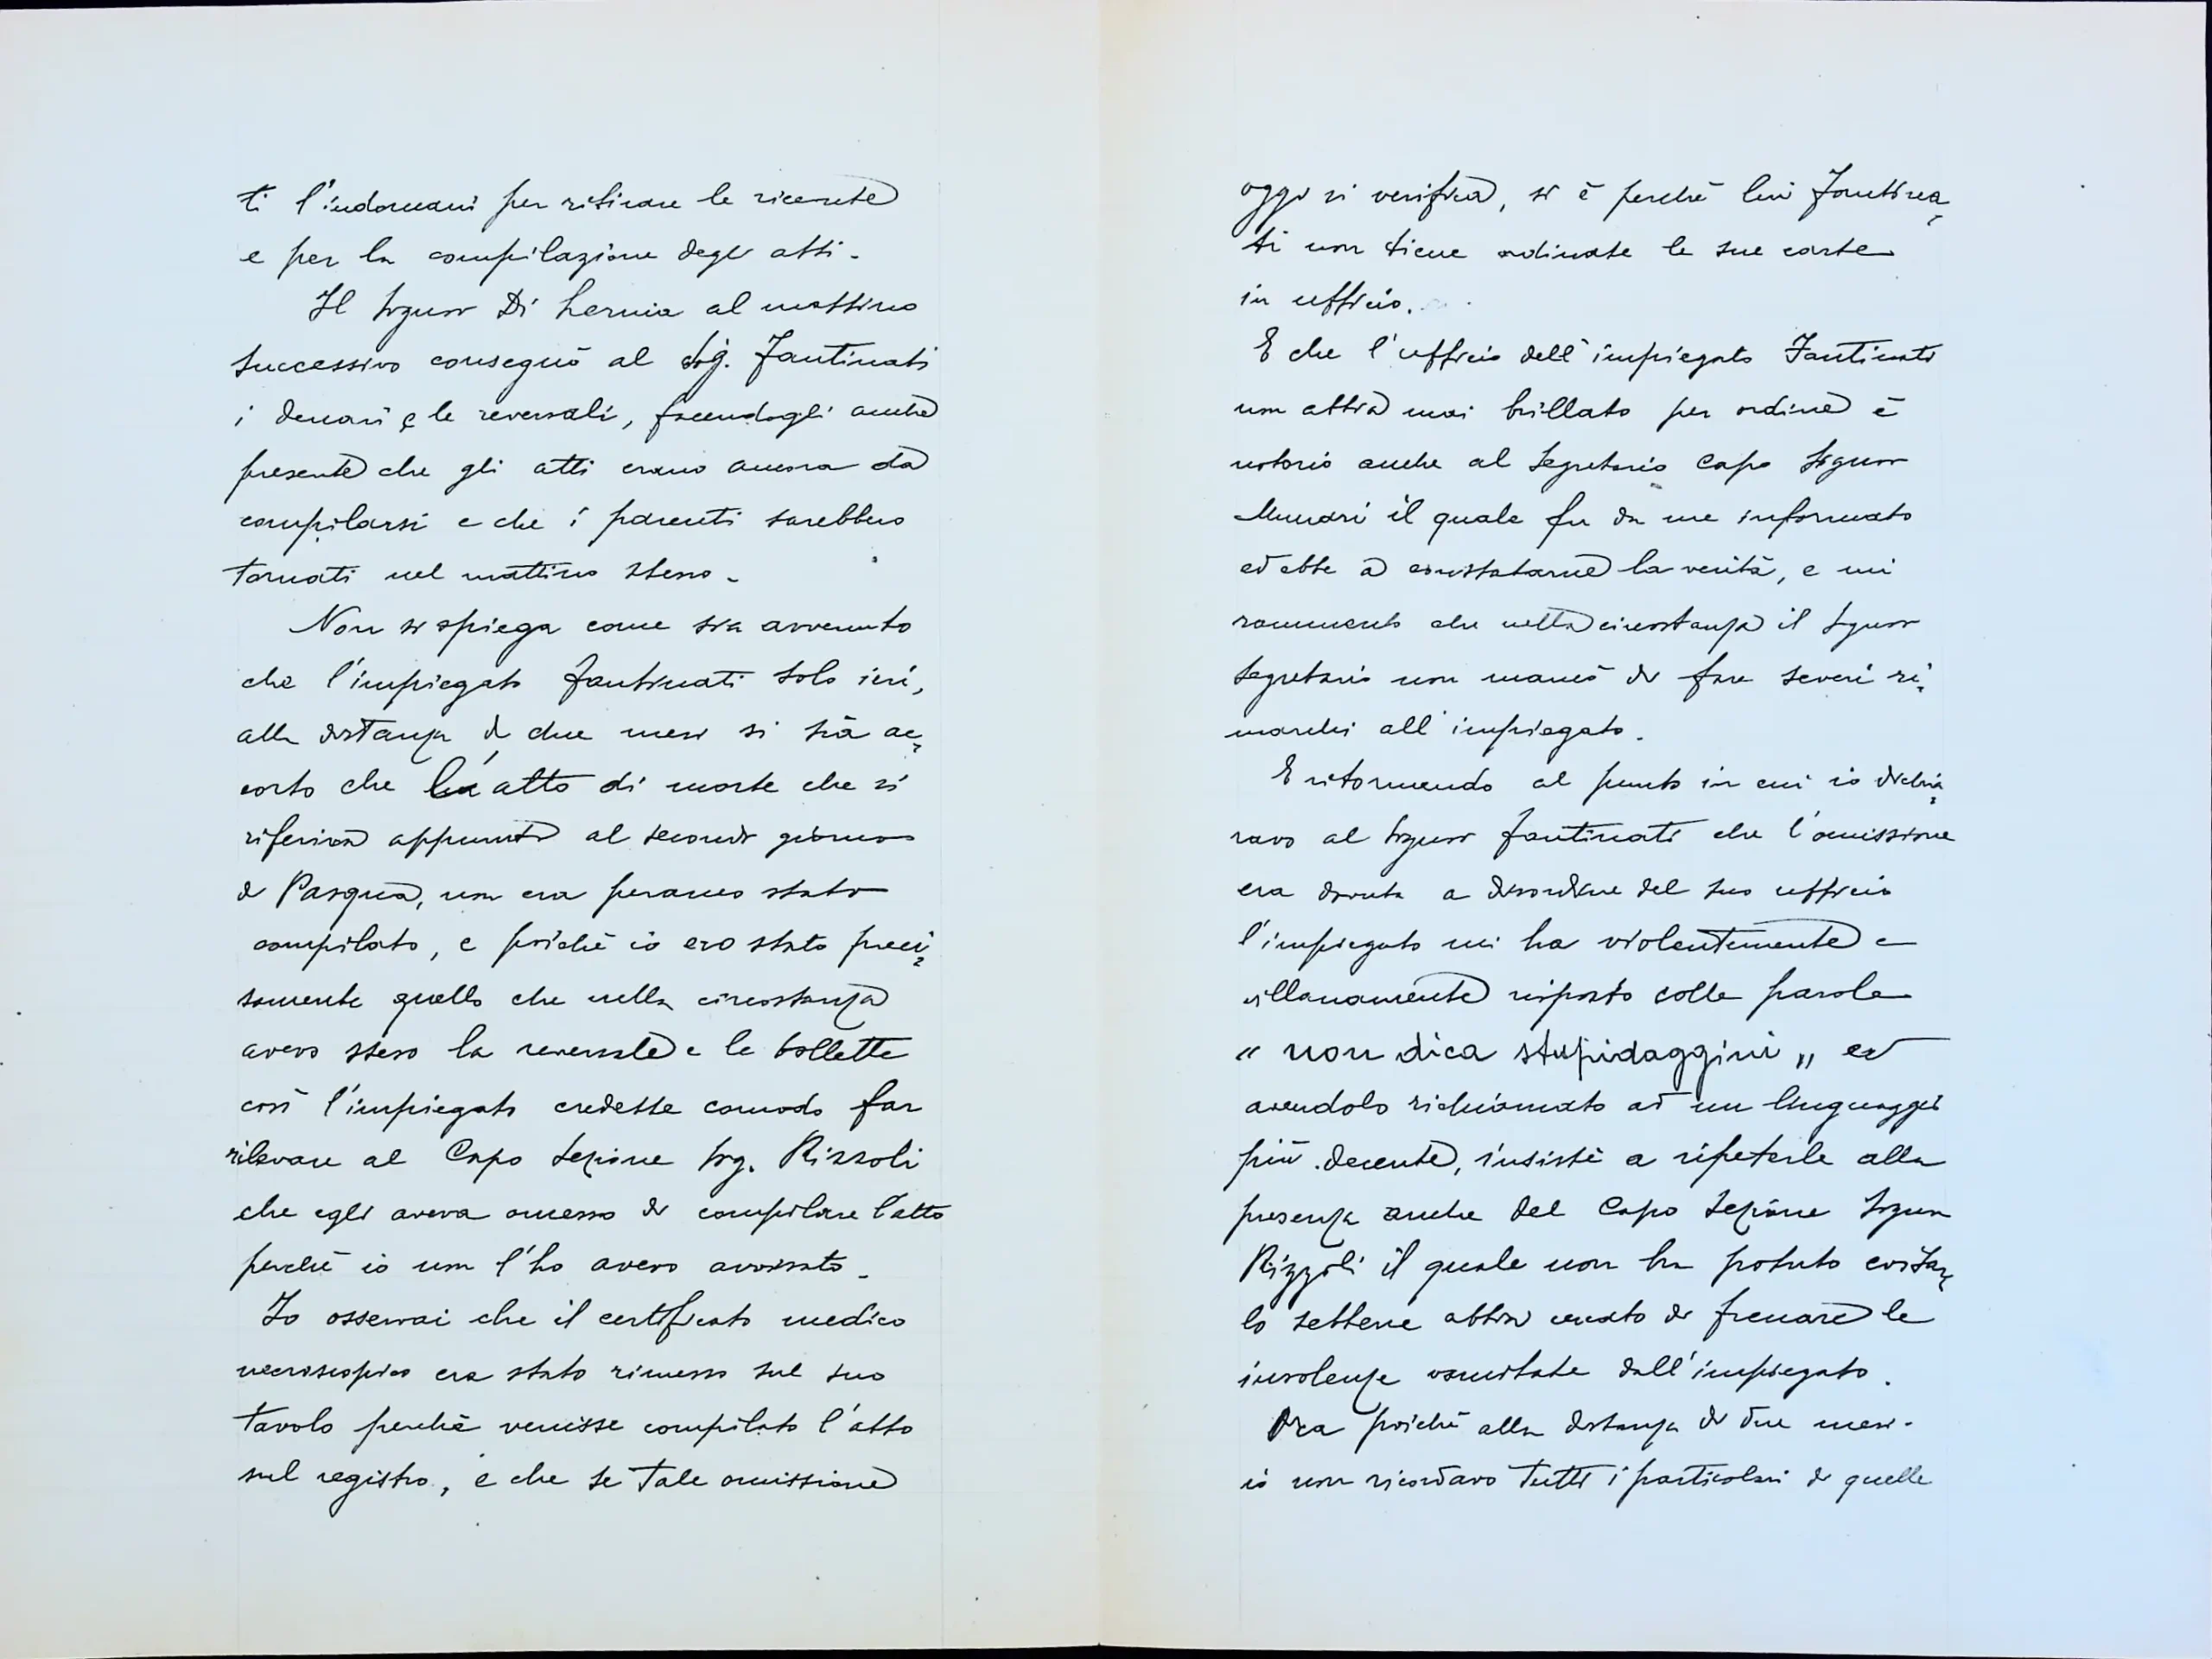 ti l'indomani per ritirare le ricevute
e per la compilazione degli atti -
Il Signor Di Lernia al mattino
successivo consegnò al Sig. Fantinati
i denari e le reversali, facendogli anche
presente che gli atti erano ancora da
compilarsi e che i parenti sarebbero
tornati nel mattino stesso -
Non si spiega come sia avvenuto
che l'impiegato Fantinati solo ieri,
alla distanza di due mesi si sia ac,
corto che l'atto di morte che si
riferiva appunto al secondo giorno
di Pasqua, non era peranco stato
compilato, e poichè io ero stato preci,
samente quello che nella circostanza
avevo steso la reversale e le bollette
così l'impiegato credette comodo far
rilevare al Capo Sezione Sig. Rizzoli
che egli aveva omesso di compilare l'atto
perchè io non l'ho avevo avvisato -
Io osservai che il certificato medico
necroscopico era stato rimesso sul suo
tavolo perchè venisse compilato l'atto
sul registro, e che se tale omissione
oggi si verifica, si è perchè lui Fantina,
ti non tiene ordinate le sue carte
in ufficio.
E che l'ufficio dell'impiegato Fantinati
non abbia mai brillato per ordine è
notorio anche al Segretario Capo Signor
Munari il quale fu da me informato
ed ebbe a constatarne la verità, e mi
rammento che nella circostanza il Signor
Segretario non mancò di fare severi ri,
marchi all'impiegato.
E ritornando al punto in cui io dichia,
ravo al Signor Fantinati che l'omissione
era dovuta a disordine del suo ufficio
l'impiegato mi ha violentemente e
villanamente risposto colle parole
" non dica stupidaggini „ ed
avendolo richiamato ad un linguaggio
più decente, insistè a ripeterle alla
presenza anche del Capo Sezione Signor
Rizzoli il quale non ha potuto evitar,
lo sebbene abbia cercato di frenare le
insolenze vomitate dall'impiegato.
Ora poichè alla distanza di due mesi
io non ricordavo tutti i particolari di quelle